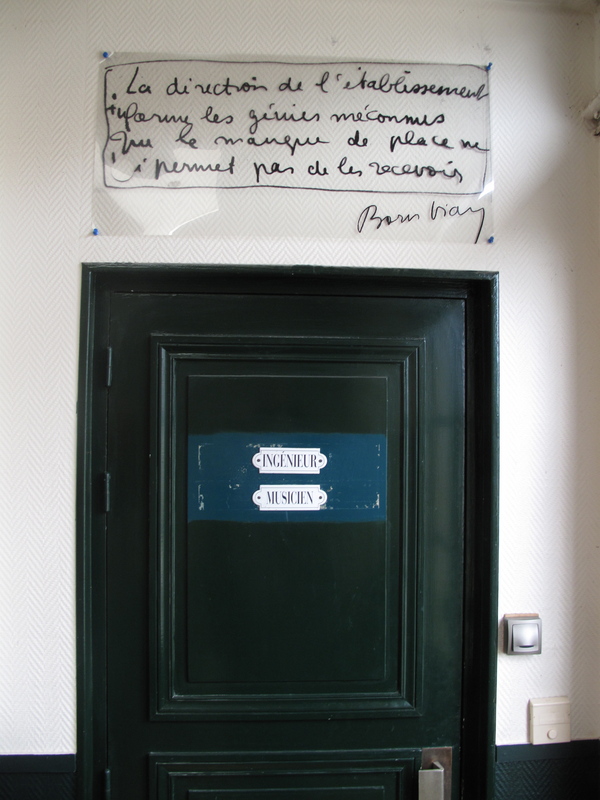 La direction de l'établissement
informe les génies méconnus
que le manque de place ne
lui permet pas de les recevoir
Boris Vian
INGÉNIEUR
MUSICIEN